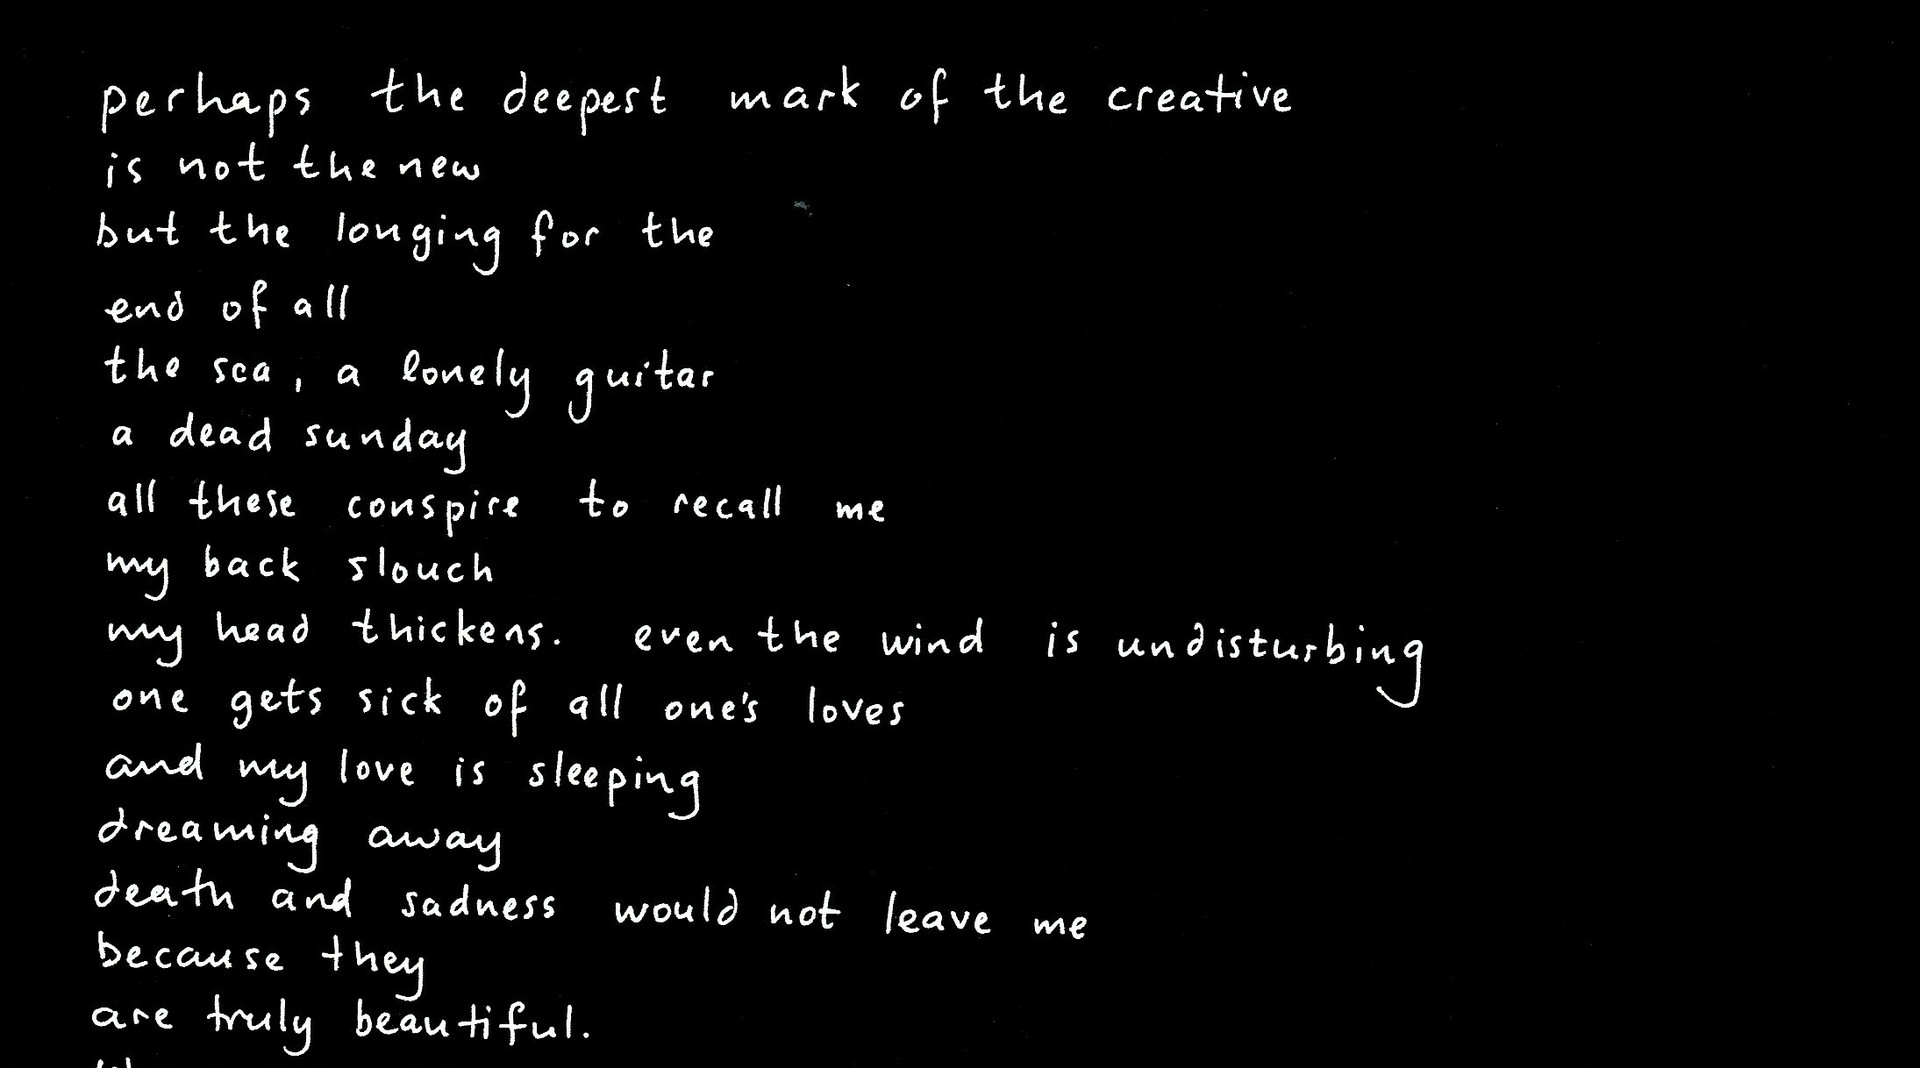 perhaps the deepest mark of the creative
is not the new
but the longing for the
end of all
the sea, a lonely guitar
a dead sunday
all these conspire to recall me
my back slouch
my head thickens. even the wind is undisturbing
one gets sick of all one's loves
and my love is sleeping
dreaming away
death and sadness would not leave me
because they
are truly beautiful.